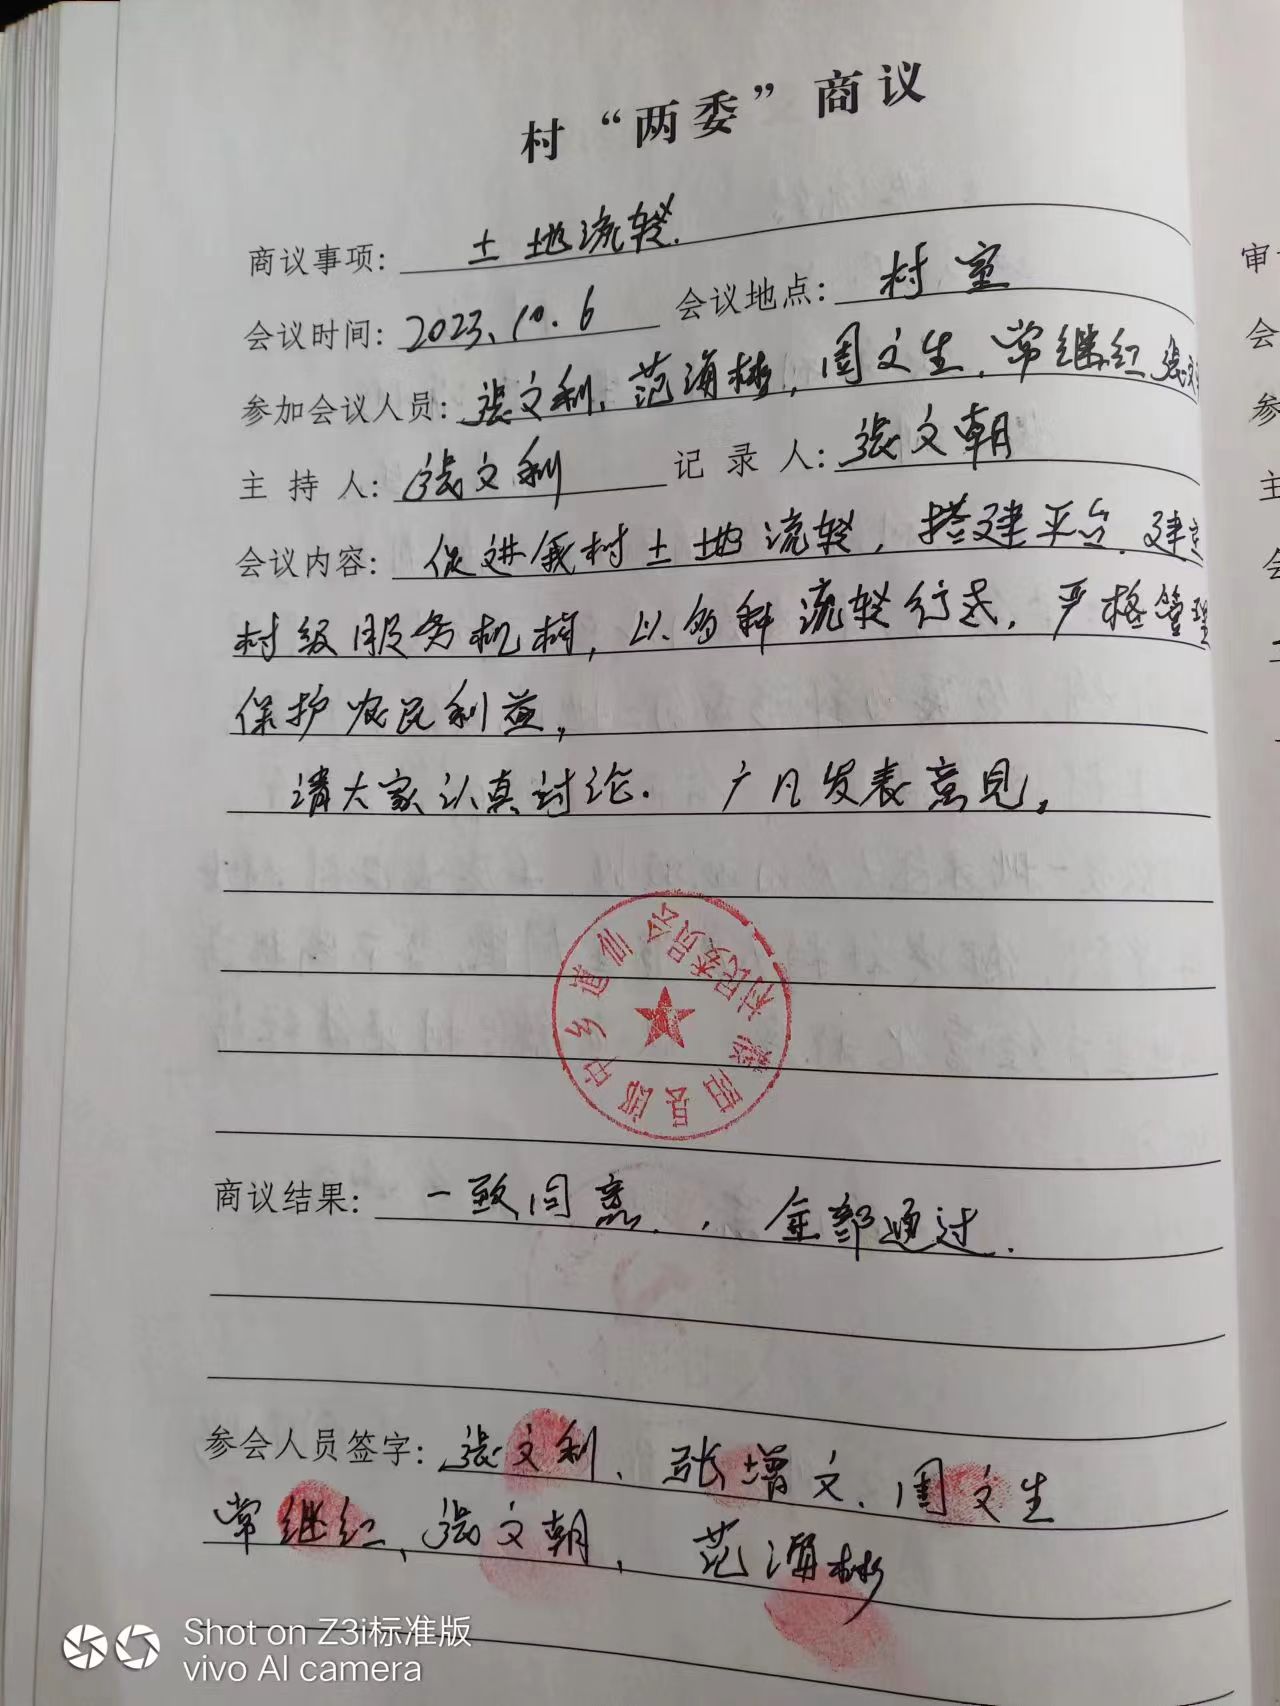 村“两委”商议
商议事项: 土地流转.
会议时间: 2023.10.6 会议地点: 村室
参加会议人员: 张文利、范海彬,周文生,常继红,张文
主持人: 张文利 记录人: 张文朝
会议内容: 促进我村土地流转,搭建平台.建立
村级服务机构,以多种流转行式,严格管理
保护农民利益。
请大家认真讨论. 广凡发表意见。
村民委员会
商议结果: 一致同意.,全部通过.
参会人员签字: 张文利、张增文.周文生
常继红、张文朝,范海彬
Shot on Z3i标准版
vivo AI camera
审
会
参
主
会